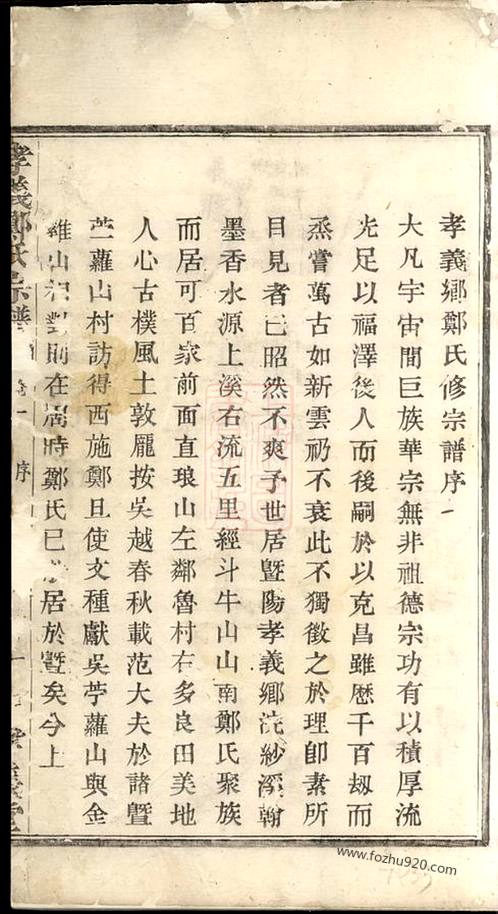 孝義鄉鄭氏修宗譜序
大凡宇宙間巨族華宗無非祖德宗功有以積厚流
光足以福澤後人而後嗣於以克昌雖歷千百刼而
烝嘗萬古如新雲礽不衰此不獨徵之於理卽素所
目見者已昭然不爽予世居曁陽孝義鄉浣紗溪翰
墨香水源上溪右流五里經斗牛山山南鄭氏聚族
而居可百家前面直琅山左鄰魯村右多良田美地
人心古樸風土敦龐按吳越春秋載范大夫於諸曁
苧蘿山村訪得西施鄭旦使文種獻吳苧蘿山與金
雞山相對則在周時鄭氏已居於曁矣今上
孝義鄭氏宗譜
卷一 序
www.fozhu920.com